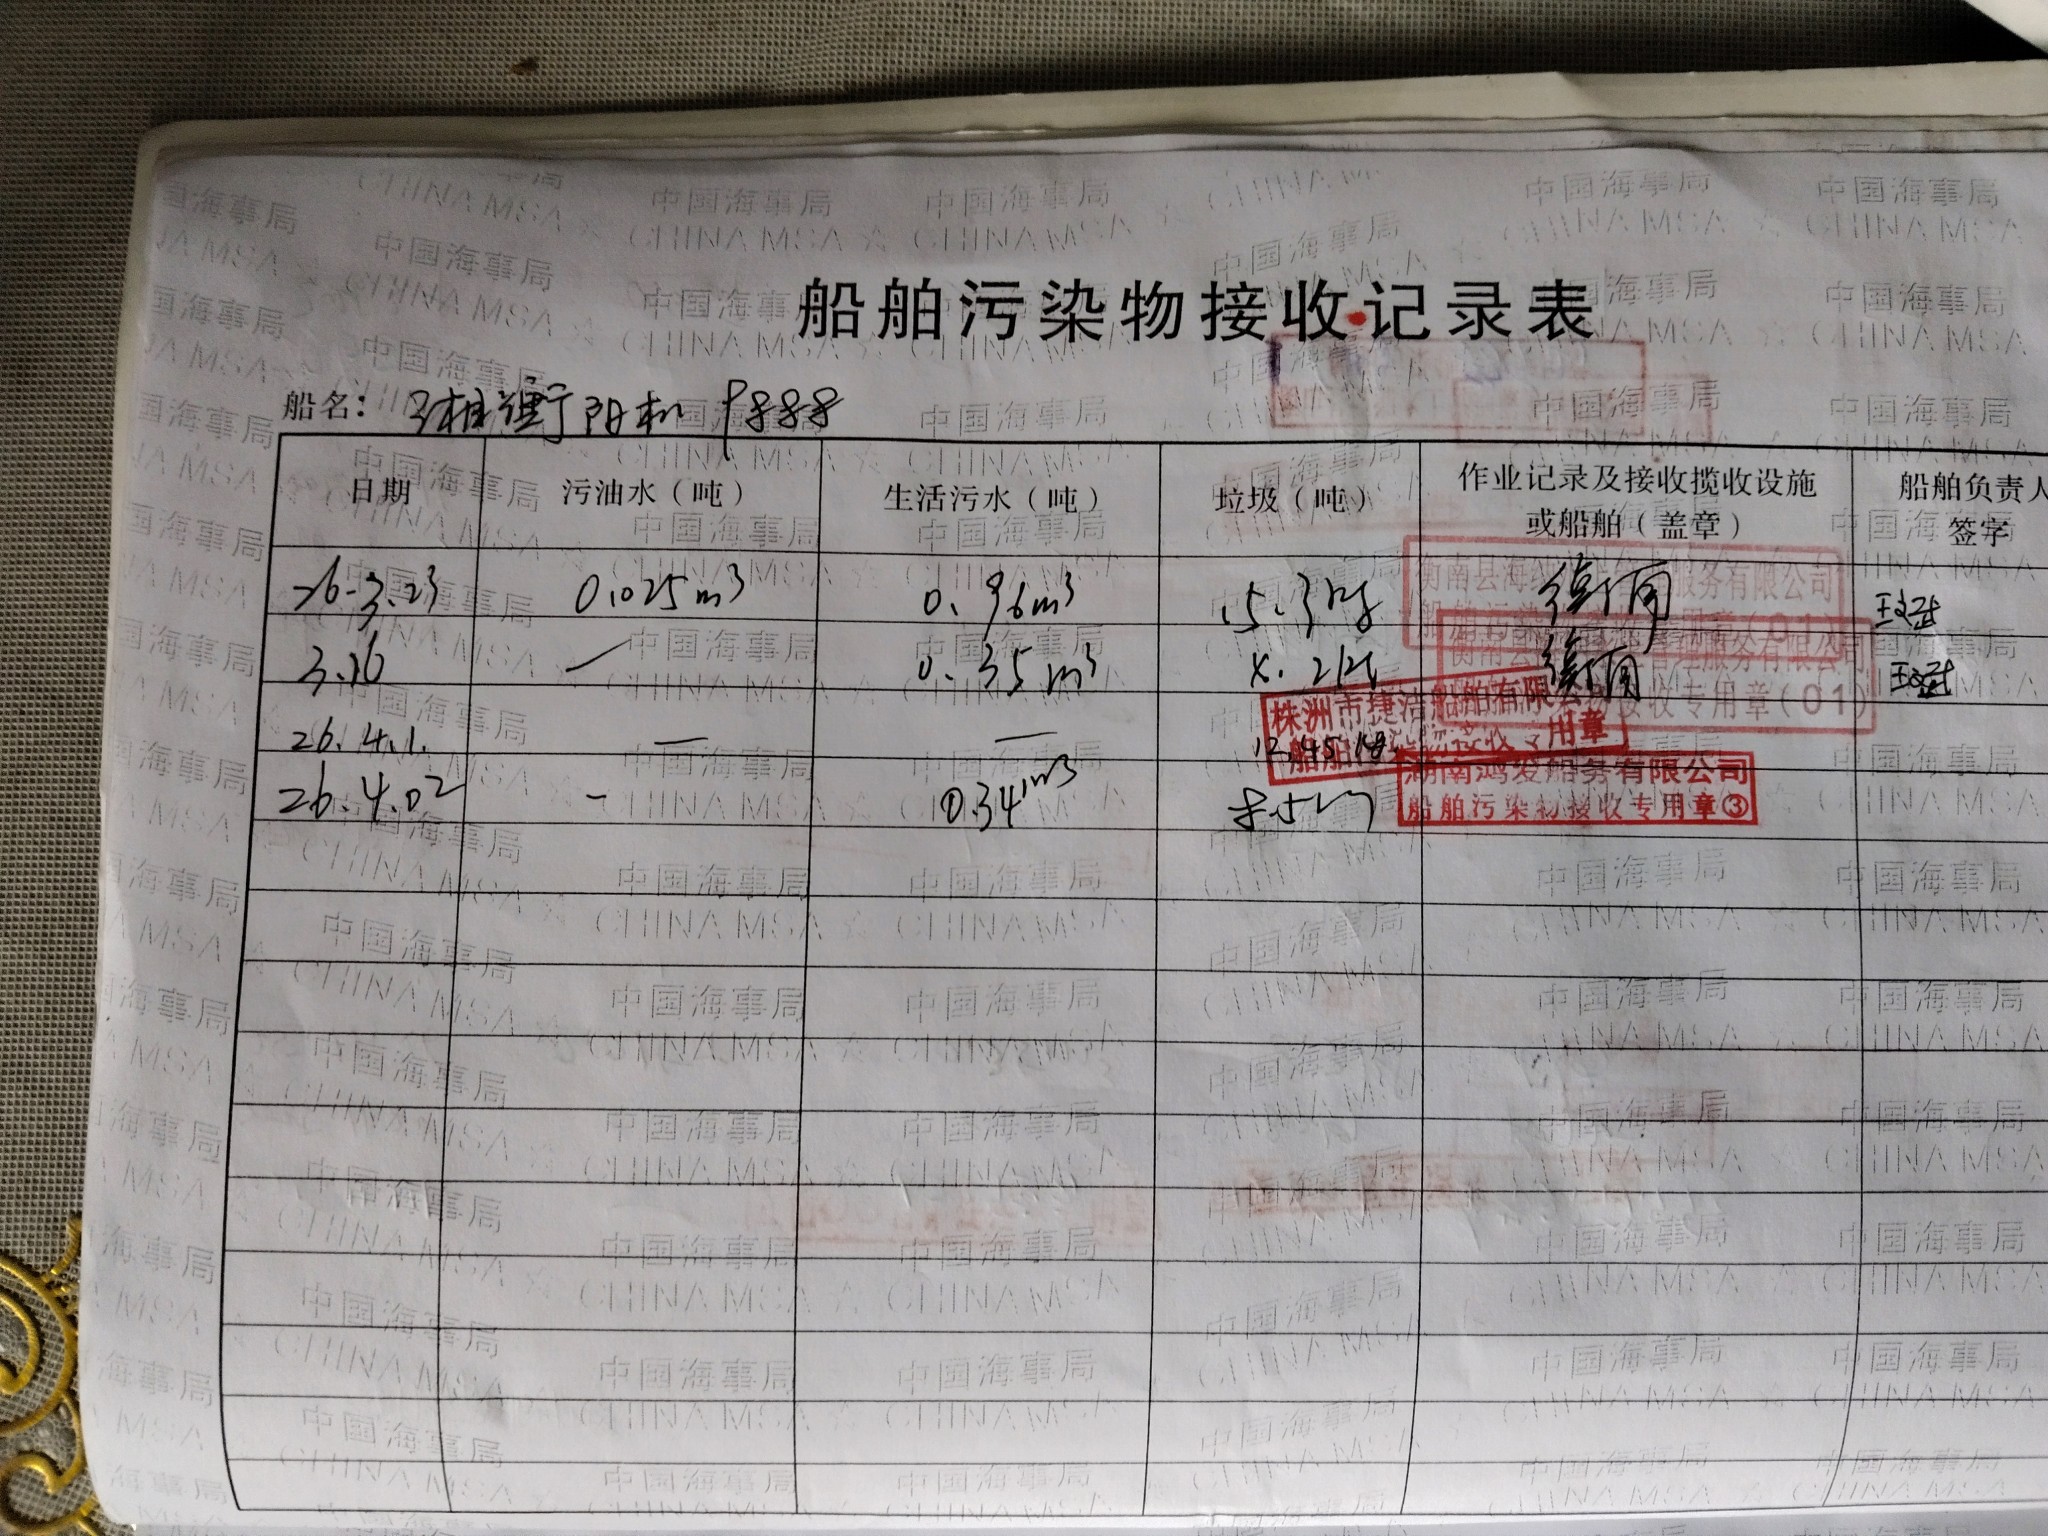 船舶污染物接收记录表
船名： 湘衡阳机 9888
日期 污油水（吨） 生活污水（吨） 垃圾（吨） 作业记录及接收揽收设施或船舶（盖章） 船舶负责人签字
26.3.23 0.025m³ 0.96m³ 15.3kg 衡南
3.26 0.35m³ 衡南
26.4.1. — — 12.45kg
26.4.02 - 0.34m³
衡南县海 服务有限公司
专用章(01)
株洲市捷洁船舶有限公司
船舶污染物接收专用章
湖南鸿发船务有限公司
船舶污染物接收专用章③
中国海事局
CHINA MSA